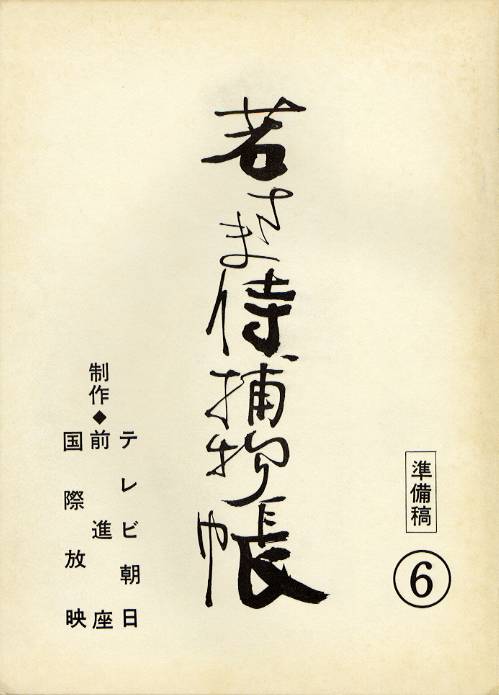 準備稿
6
若さま侍捕物帳
テレビ朝日
制作◆前進座
国際放映